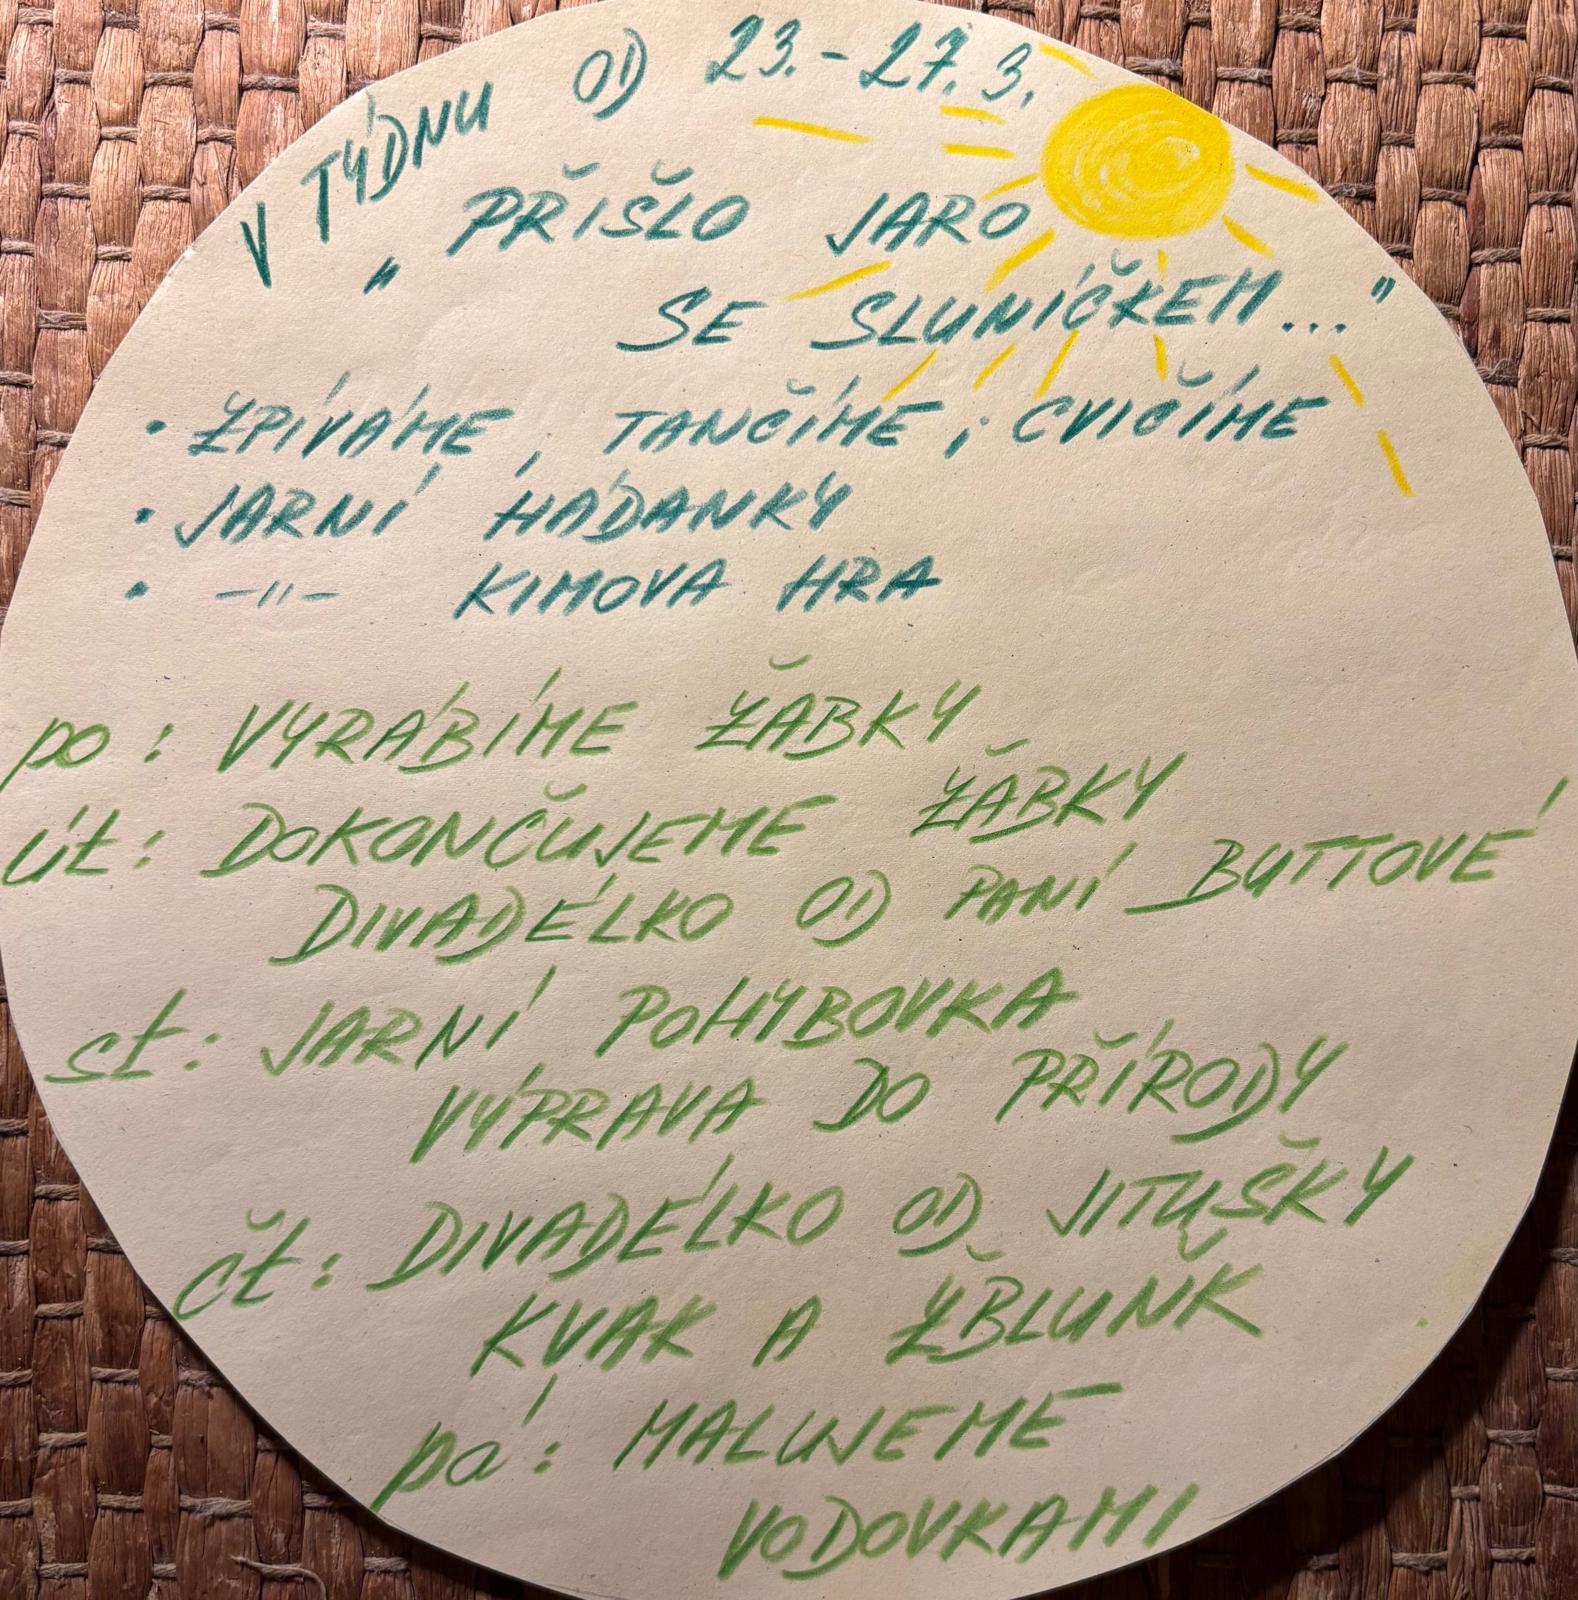 V TÝDNU OD 23.-27.3.
„PŘIŠLO JARO
SE SLUNÍČKEM..."
• ZPÍVÁME, TANČÍME, CVIČÍME
• JARNÍ HÁDANKY
• -"- KIMOVA HRA
po: VYRÁBÍME ŽABKY
út: DOKONČUJEME ŽABKY
DIVADÉLKO OD PANÍ BUTTOVÉ
st: JARNÍ POHYBOVKA
VÝPRAVA DO PŘÍRODY
čt: DIVADÉLKO OD JITUŠKY
KVAK A ŽBLUŇK
pá: MALUJEME
VODOVKAMI